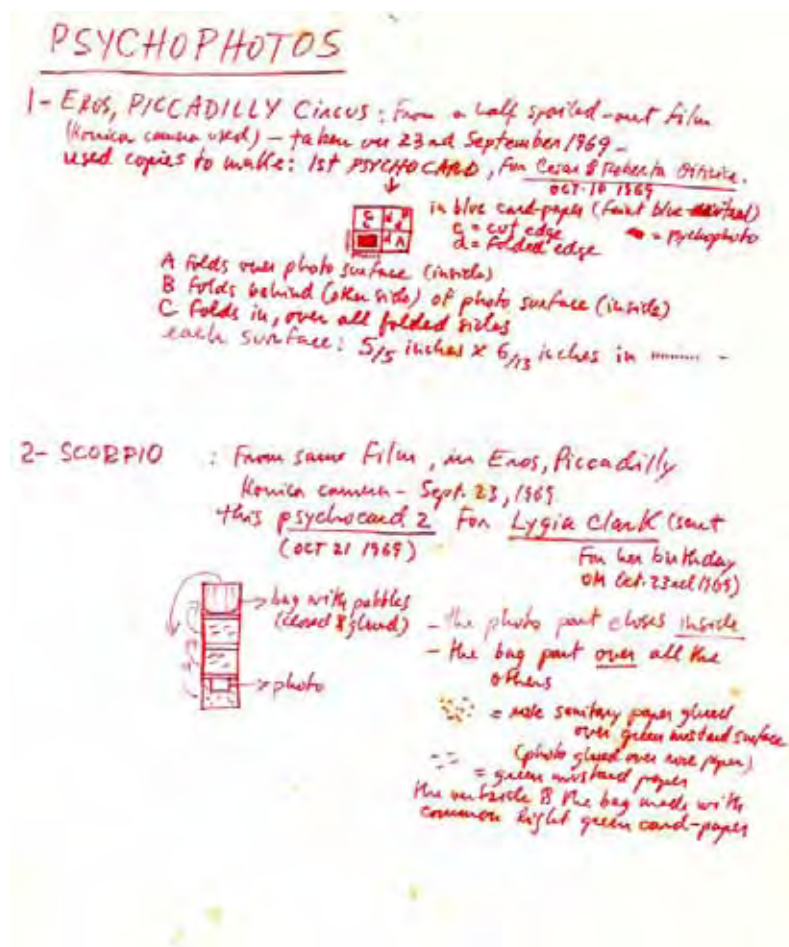 PSYCHOPHOTOS
1- EROS, PICCADILLY CIRCUS: From a half spoiled-out film
(Konica camera used) - taken on 23rd September 1969 -
used copies to make: 1st PSYCHOCARD, for Cesar & Roberta Oiticica.
OCT-10 1969
in blue card-paper (faint blue
c = cut edge
d = folded edge
= psychophoto
C
d B
d
d A
A folds over photo surface (inside)
B folds behind (other side) of photo surface (inside)
C folds in, over all folded sides
each surface: 5/5 inches x 6/13 inches in ........ -
2- SCORPIO : From same film, in Eros, Piccadilly
Konica camera - Sept. 23, 1969
this psychocard 2 For Lygia Clark (sent
(OCT 21 1969)
For her birthday
on Oct. 23rd 1969)
bag with pebbles
(closed & glued)
- the photo part closes inside
- the bag part over all the
others
photo
= rose sanitary paper glued
over green mustard surface
(photo glued over rose paper)
= green mustard paper
the outside & the bag made with
common light green card-paper